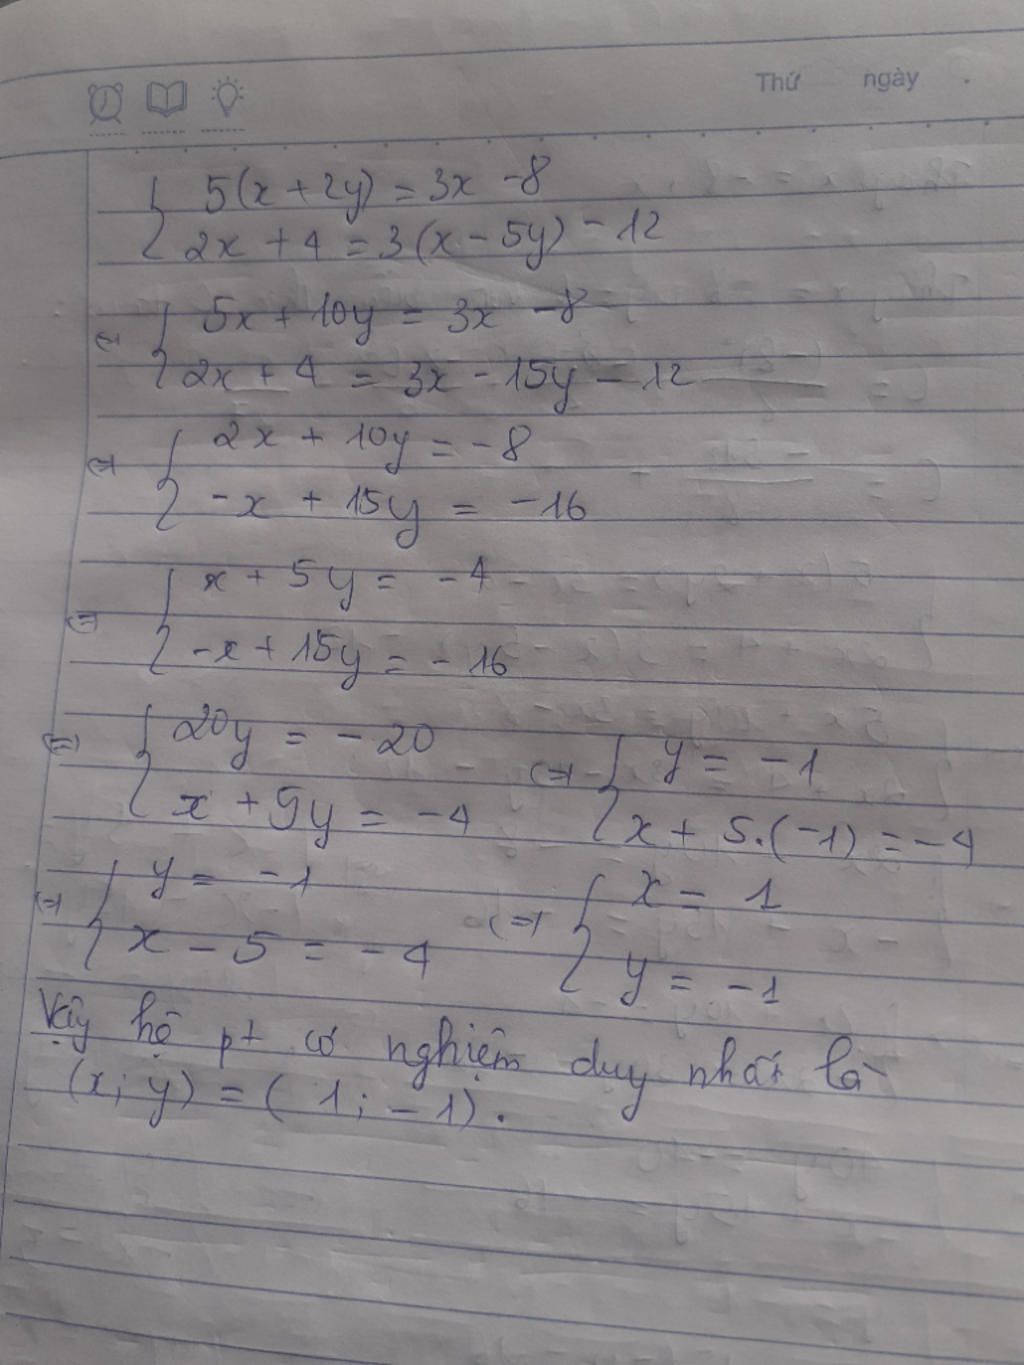 Thứ ngày .
{ 5(x + 2y) = 3x - 8
2x + 4 = 3(x - 5y) - 12
⇔ { 5x + 10y = 3x - 8
2x + 4 = 3x - 15y - 12
⇔ { 2x + 10y = -8
-x + 15y = -16
⇔ { x + 5y = -4
-x + 15y = -16
⇔ { 20y = -20
x + 5y = -4
⇔ { y = -1
x + 5.(-1) = -4
⇔ { y = -1
x - 5 = -4
⇔ { x = 1
y = -1
Vậy hệ pt có nghiệm duy nhất là
(x; y) = (1; -1).